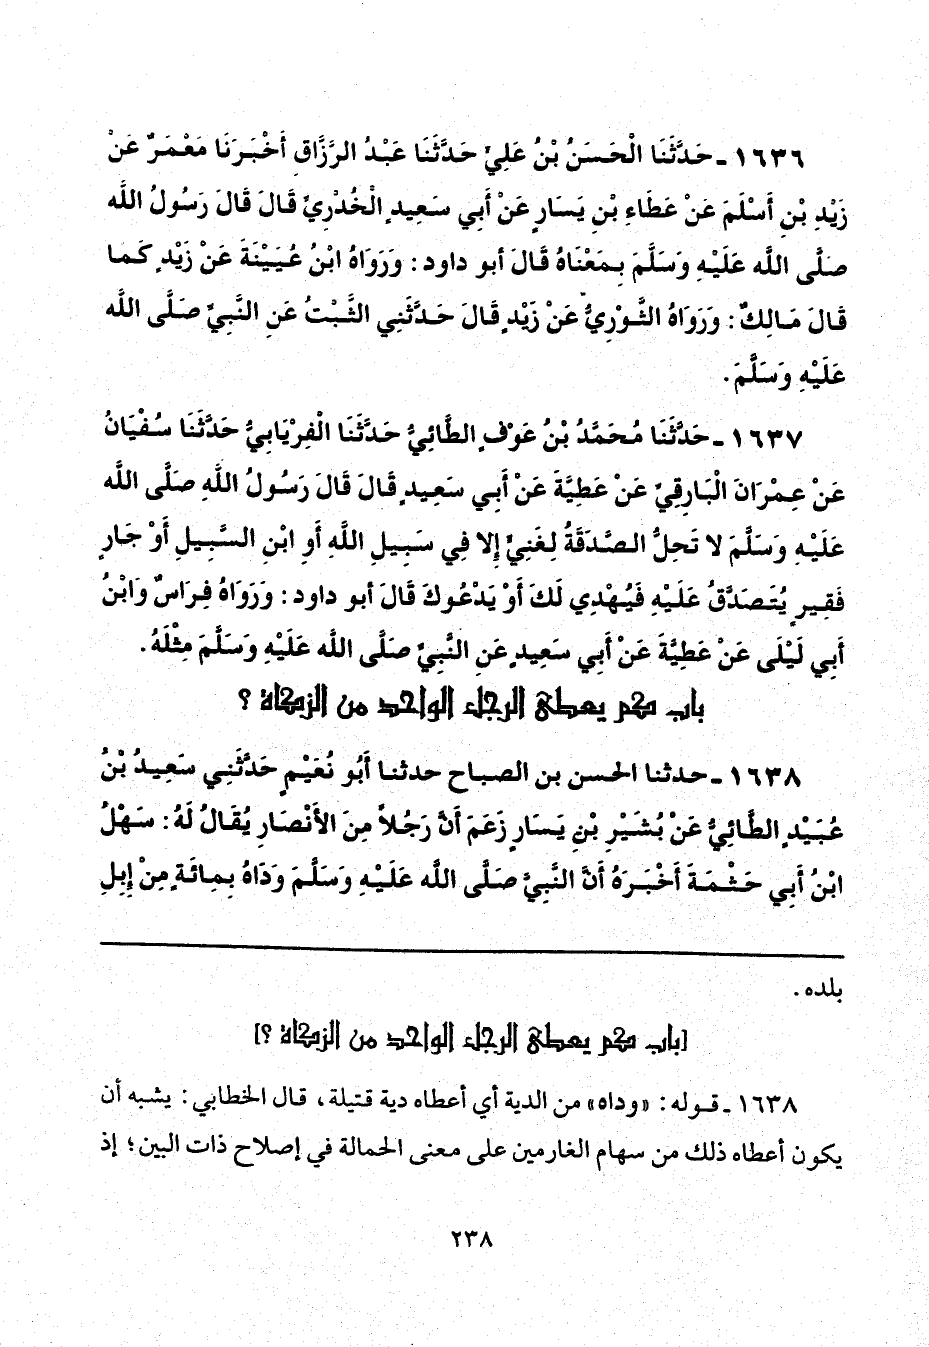 ١٦٣٦ ـ حَدَّثَنَا الْحَسَنُ بْنُ عَلِيٍّ حَدَّثَنَا عَبْدُ الرَّزَّاقِ أَخْبَرَنَا مَعْمَرٌ عَنْ
زَيْدِ بْنِ أَسْلَمَ عَنْ عَطَاءِ بْنِ يَسَارٍ عَنْ أَبِي سَعِيدٍ الْخُدْرِيِّ قَالَ قَالَ رَسُولُ اللَّه
صَلَّى اللَّه عَلَيْهِ وَسَلَّمَ بِمَعْنَاهُ قَالَ أبو داود : وَرَوَاهُ ابْنُ عُيَيْنَةَ عَنْ زَيْدٍ كَمَا
قَالَ مَالِكٌ : وَرَوَاهُ الثَّوْرِيُّ عَنْ زَيْدٍ قَالَ حَدَّثَنِي الثَّبْتُ عَنِ النَّبِيِّ صَلَّى اللَّه
عَلَيْهِ وَسَلَّمَ .
١٦٣٧ ـ حَدَّثَنَا مُحَمَّدُ بْنُ عَوْفٍ الطَّائِيُّ حَدَّثَنَا الْفِرْيَابِيُّ حَدَّثَنَا سُفْيَانُ
عَنْ عِمْرَانَ الْبَارِقِيِّ عَنْ عَطِيَّةَ عَنْ أَبِي سَعِيدٍ قَالَ قَالَ رَسُولُ اللَّهِ صَلَّى اللَّه
عَلَيْهِ وَسَلَّمَ لا تَحِلُّ الصَّدَقَةُ لِغَنِيٍّ إِلا فِي سَبِيلِ اللَّهِ أَوِ ابْنِ السَّبِيلِ أَوْ جَارٍ
فَقِيرٍ يُتَصَدَّقُ عَلَيْهِ فَيُهْدِي لَكَ أَوْ يَدْعُوكَ قَالَ أبو داود : وَرَوَاهُ فِرَاسٌ وَابْنُ
أَبِي لَيْلَى عَنْ عَطِيَّةَ عَنْ أَبِي سَعِيدٍ عَنِ النَّبِيِّ صَلَّى اللَّه عَلَيْهِ وَسَلَّمَ مِثْلَهُ .
باب كم يعطى الرجل الواحد من الزكاة ؟
١٦٣٨ ـ حدثنا الحسن بن الصباح حدثنا أَبُو نُعَيْمٍ حَدَّثَنِي سَعِيدُ بْنُ
عُبَيْدٍ الطَّائِيُّ عَنْ بُشَيْرِ بْنِ يَسَارٍ زَعَمَ أَنَّ رَجُلاً مِنَ الأَنْصَارِ يُقَالُ لَهُ : سَهْلُ
ابْنُ أَبِي حَثْمَةَ أَخْبَرَهُ أَنَّ النَّبِيَّ صَلَّى اللَّه عَلَيْهِ وَسَلَّمَ وَدَاهُ بِمِائَةٍ مِنْ إِبِلِ
بلده .
[باب كم يعطى الرجل الواحد من الزكاة ؟]
١٦٣٨ ـ قوله : «وداه» من الدية أي أعطاه دية قتيلة ، قال الخطابي : يشبه أن
يكون أعطاه ذلك من سهام الغارمين على معنى الحمالة في إصلاح ذات البين ؛ إذ
٢٣٨